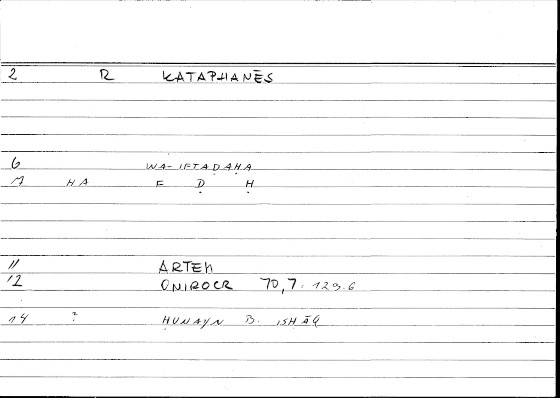 2 R KATAPHANĒS
6 WA-IFTAḌAḤA
17 HA F Ḍ Ḥ
11 ARTEM
12 ONIROCR 70,7. 129.6
14 ? ḤUNAYN B. ISḤĀQ